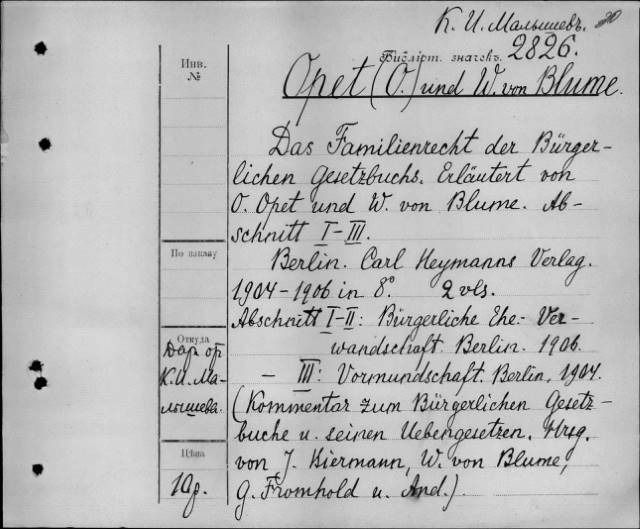 К. И. Малышевъ. 20
Библіот. значекъ. 2826.
Инв.
№
Opet (O.) und W. von Blume.
Das Familienrecht der Bürger-
lichen Gesetzbuchs. Erläutert von
O. Opet und W. von Blume. Ab-
schnitt I-III.
По каталогу
Berlin. Carl Heymanns Verlag.
1904-1906 in 8°. 2 vls.
Abschnitt I-II: Bürgerliche Ehe. Ver-
wandschaft. Berlin. 1906.
Откуда
Дар от
К.И. Ма-
лышева.
— III: Vormundschaft. Berlin, 1904.
(Kommentar zum Bürgerlichen Gesetz-
buche u. seinen Nebengesetzen. Hrsg.
von J. Biermann, W. von Blume,
G. Fromhold u. And.).
Цѣна
10р.